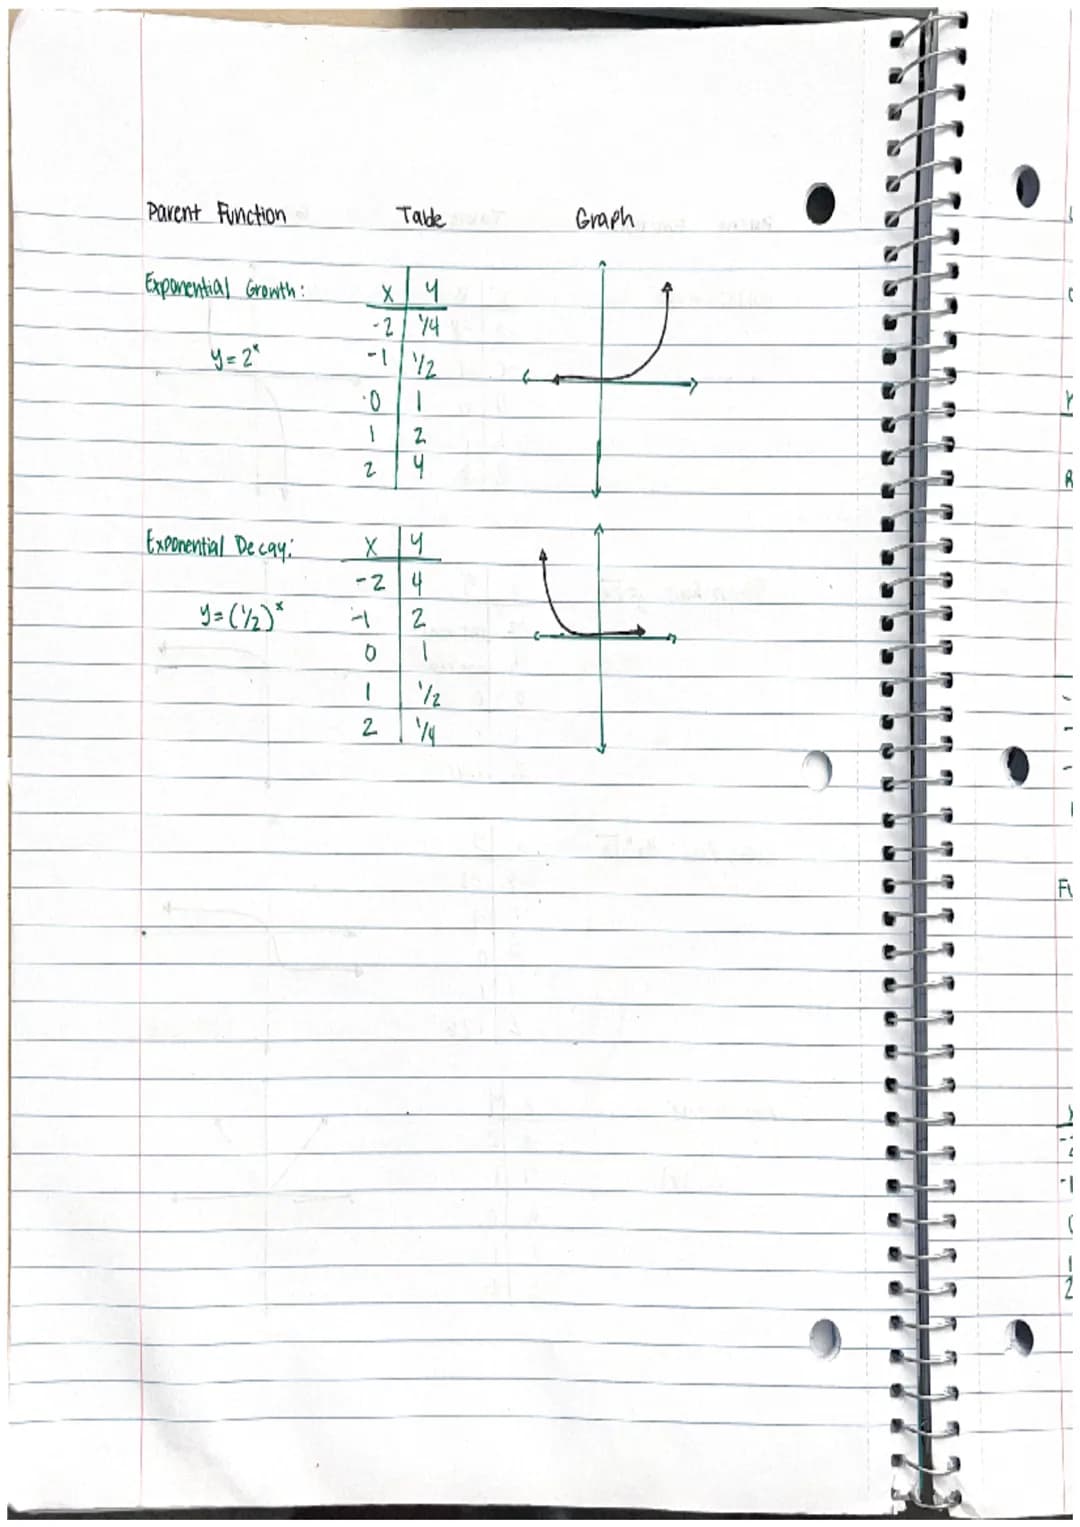 Parent Function Table Graph
Exponential Growth: x y
-2 1/4
y = 2ˣ -1 1/2
0 1
1 2
2 4
Exponential Decay: x y
-2 4
y = (1/2)ˣ -1 2
0 1
1 1/2
2 1/4